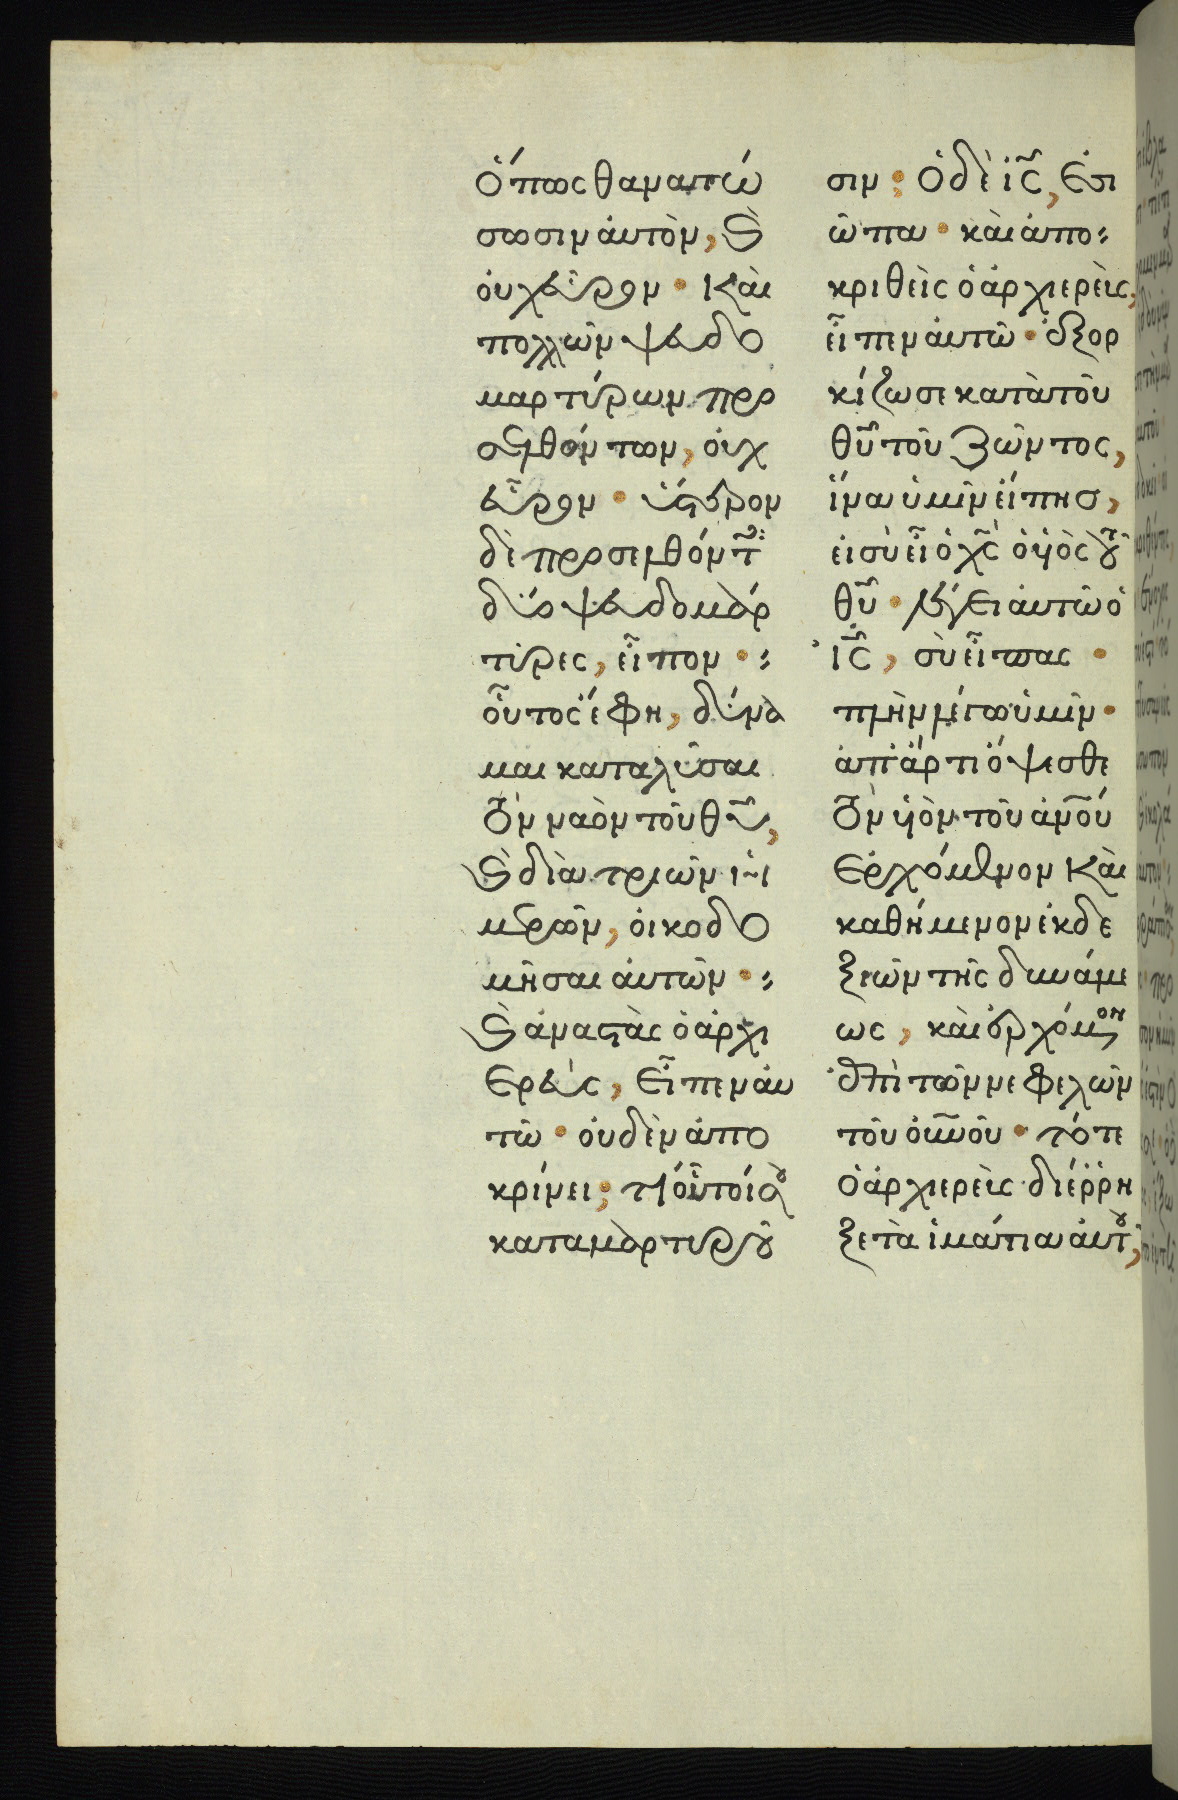 ὅπως θανατώ
σωσιν ἀυτὸν, ϗ̀
ὀυχ εὗρον · Καὶ
πολλῶν ψευδο
μαρτύρων προ
σελθόντων, ὀυχ
εὗρον · ὕστερον
δὲ προσελθόντ̅ες
δύο ψευδομάρ
τυρες, εἶπον · :
οὗτος ἔφη, δύνα
μαι καταλῦσαι
τὸν ναὸν τοῦ θ̅υ,
ϗ̀ διὰ τριῶν ἡ
μερῶν, ὀικοδο
μῆσαι ἀυτῶν · :
ϗ̀ ἀναστὰς ὁ ἀρχι
ερεὺς, εἶπεν ἀυ
τῶ · ὀυδὲν ἀπο
κρίνει; τί οὗτοί σου
καταμαρτυροῦ
σιν; ὁ δὲ ι̅ς, ἐσι
ώπα · καὶ ἀπο:
κριθεὶς ὁ ἀρχιερεὺς,
εἶπεν ἀυτῶ · ἐξορ
κίζω σε κατὰ τοῦ
θ̅υ τοῦ ζῶντος,
ἵνα ὑμῖν εἴπησ,
εἰ σὺ εἶ ὁ χ̅ς ὁ ὑὸς τοῦ
θ̅υ · λέγει ἀυτῶ ὁ
ι̅ς, σὺ εἶπας ·
πλὴν λέγω ὑμῖν ·
ἀπ' ἄρτι ὄψεσθε
τὸν ὑὸν τοῦ α̅νου
ἐρχόμενον Καὶ
καθήμενον ἐκ δε
ξιῶν τῆς δυνάμε
ως, καὶ ἐρχόμενον
ἐπὶ τῶν νεφελῶν
τοῦ ὀυ̅νοῦ · τότε
ὁ ἀρχιερεὺς διέῤῥη
ξε τὰ ἱμάτια ἀυτοῦ,